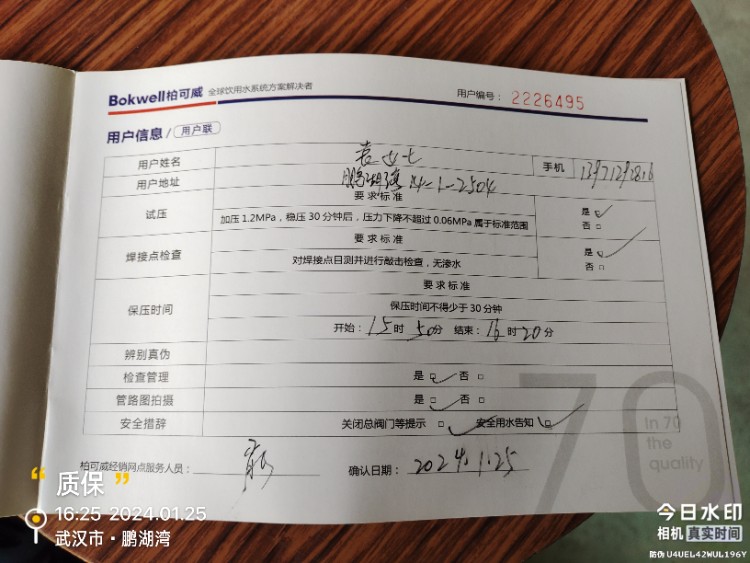 Bokwell柏可威 全球饮用水系统方案解决者
用户编号：2226495
用户信息/ 用户联
用户姓名 袁女士 手机 13921292816
用户地址 鹏湖湾 14-1-2504
试压 要求标准 是
加压1.2MPa，稳压30分钟后，压力下降不超过0.06MPa属于标准范围 否
焊接点检查 要求标准 是
对焊接点目测并进行敲击检查，无渗水 否
保压时间 要求标准
保压时间不得少于30分钟
开始：15时50分 结束：16时20分
辨别真伪
检查管理 是 否
管路图拍摄 是 否
安全措辞 关闭总阀门等提示 安全用水告知
70
In 70
the
quality
柏可威经销网点服务人员： 确认日期：2024.1.25
“质保”
16:25 2024.01.25
武汉市·鹏湖湾
今日水印
相机 真实时间
防伪 U4UEL42WUL196Y